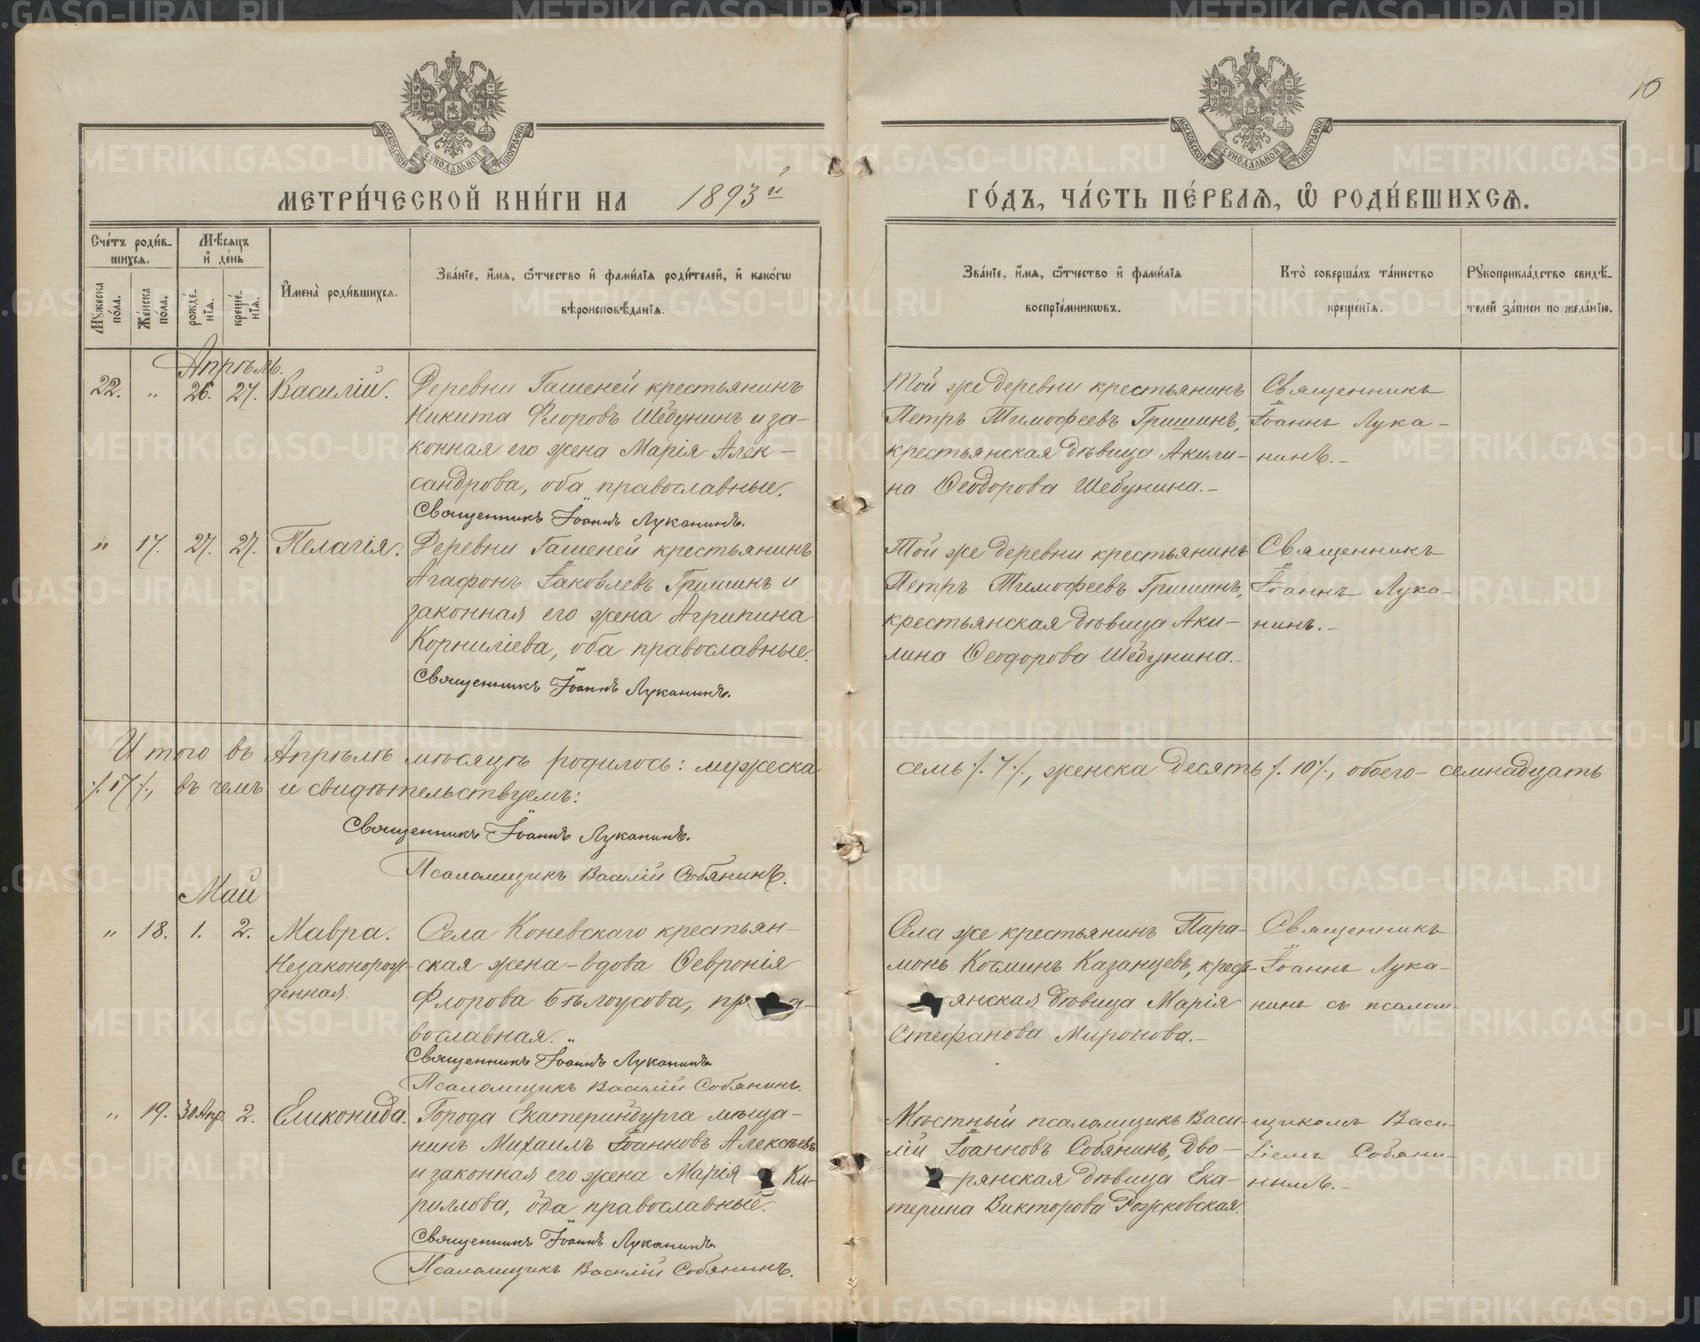 10
МЕТРИ́ЧЕСКОЙ КНИ́ГИ НА 1893й
ГО́ДЪ, ЧА́СТЬ ПЕ́РВАЯ, Ѡ РОДИ́ВШИХСЯ.
Сче́тъ роди́в-
шихся.
Мꙋжеска по́ла.
Же́нска по́ла.
Мѣсяцъ
и҆ де́нь
рожде́нїя.
креще́нїя.
И҆мена̀ роди́вшихся.
Зва́нїе, и҆́мя, ѻ҆́тчество и҆ фами́лїя роди́телей, и҆ како́гѡ
вѣроисповѣ́данїя.
Зва́нїе, и҆́мя, ѻ҆́тчество и҆ фами́лїя
воспрїе́мникѡвъ.
Кто̀ соверша́лъ та́инство
креще́нїя.
Рꙋкоприкла́дство свидѣ́-
телей за́писи по жела́нїю.
Апрѣль.
22. „ 26. 27. Василій.
Деревни Гашеней крестьянинъ
Никита Флоровъ Шебунинъ и за-
конная его жена Марія Алек-
сандрова, оба православные.
Священникъ Іоаннъ Луканинъ.
Той же деревни крестьянинъ
Петръ Тимофеевъ Гришинъ,
крестьянская дѣвица Акили-
на Ѳеодорова Шебунина.-
Священникъ
Іоаннъ Лука-
нинъ.-
„ 17. 27. 27. Пелагія.
Деревни Гашеней крестьянинъ
Агафонъ Іаковлевъ Гришинъ и
законная его жена Агрипина
Корниліева, оба православные.
Священникъ Іоаннъ Луканинъ.
Той же деревни крестьянинъ
Петръ Тимофеевъ Гришинъ,
крестьянская дѣвица Аки-
лина Ѳеодорова Шебунина.-
Священникъ
Іоаннъ Лука-
нинъ.-
Итого въ Апрѣлѣ мѣсяцѣ родилось: мужеска семь /.7./, женска десять /.10./, обоего - семнадцать
/.17./, въ чемъ и свидѣтельствуемъ:
Священникъ Іоаннъ Луканинъ.
Псаломщикъ Василій Собянинъ.
Май
„ 18. 1. 2. Мавра.
Незаконорож-
денная.
Села Коневскаго крестьян-
ская жена-вдова Ѳевронія
Флорова Бѣлоусова, пр а-
вославная.
Священникъ Іоаннъ Луканинъ
Псаломщикъ Василій Собянинъ.
Села же крестьянинъ Пара-
монъ Косминъ Казанцевъ, крест-
янская дѣвица Марія
Стефанова Миронова.-
Священникъ
Іоаннъ Лука-
нинъ съ псалом-
„ 19. 30 Апр. 2. Еликонида.
Города Екатеринбурга мѣща-
нинъ Михаилъ Іоанновъ Алексѣевъ
и законная его жена Марія Ки-
риллова, оба православные.
Священникъ Іоаннъ Луканинъ
Псаломщикъ Василій Собянинъ.
Мѣстный псаломщикъ Васи-
лій Іоанновъ Собянинъ, дво-
рянская дѣвица Ека-
терина Викторова Рожковская.
щикомъ Васи-
ліемъ Собяни-
нымъ.-
METRIKI.GASO-URAL.RU